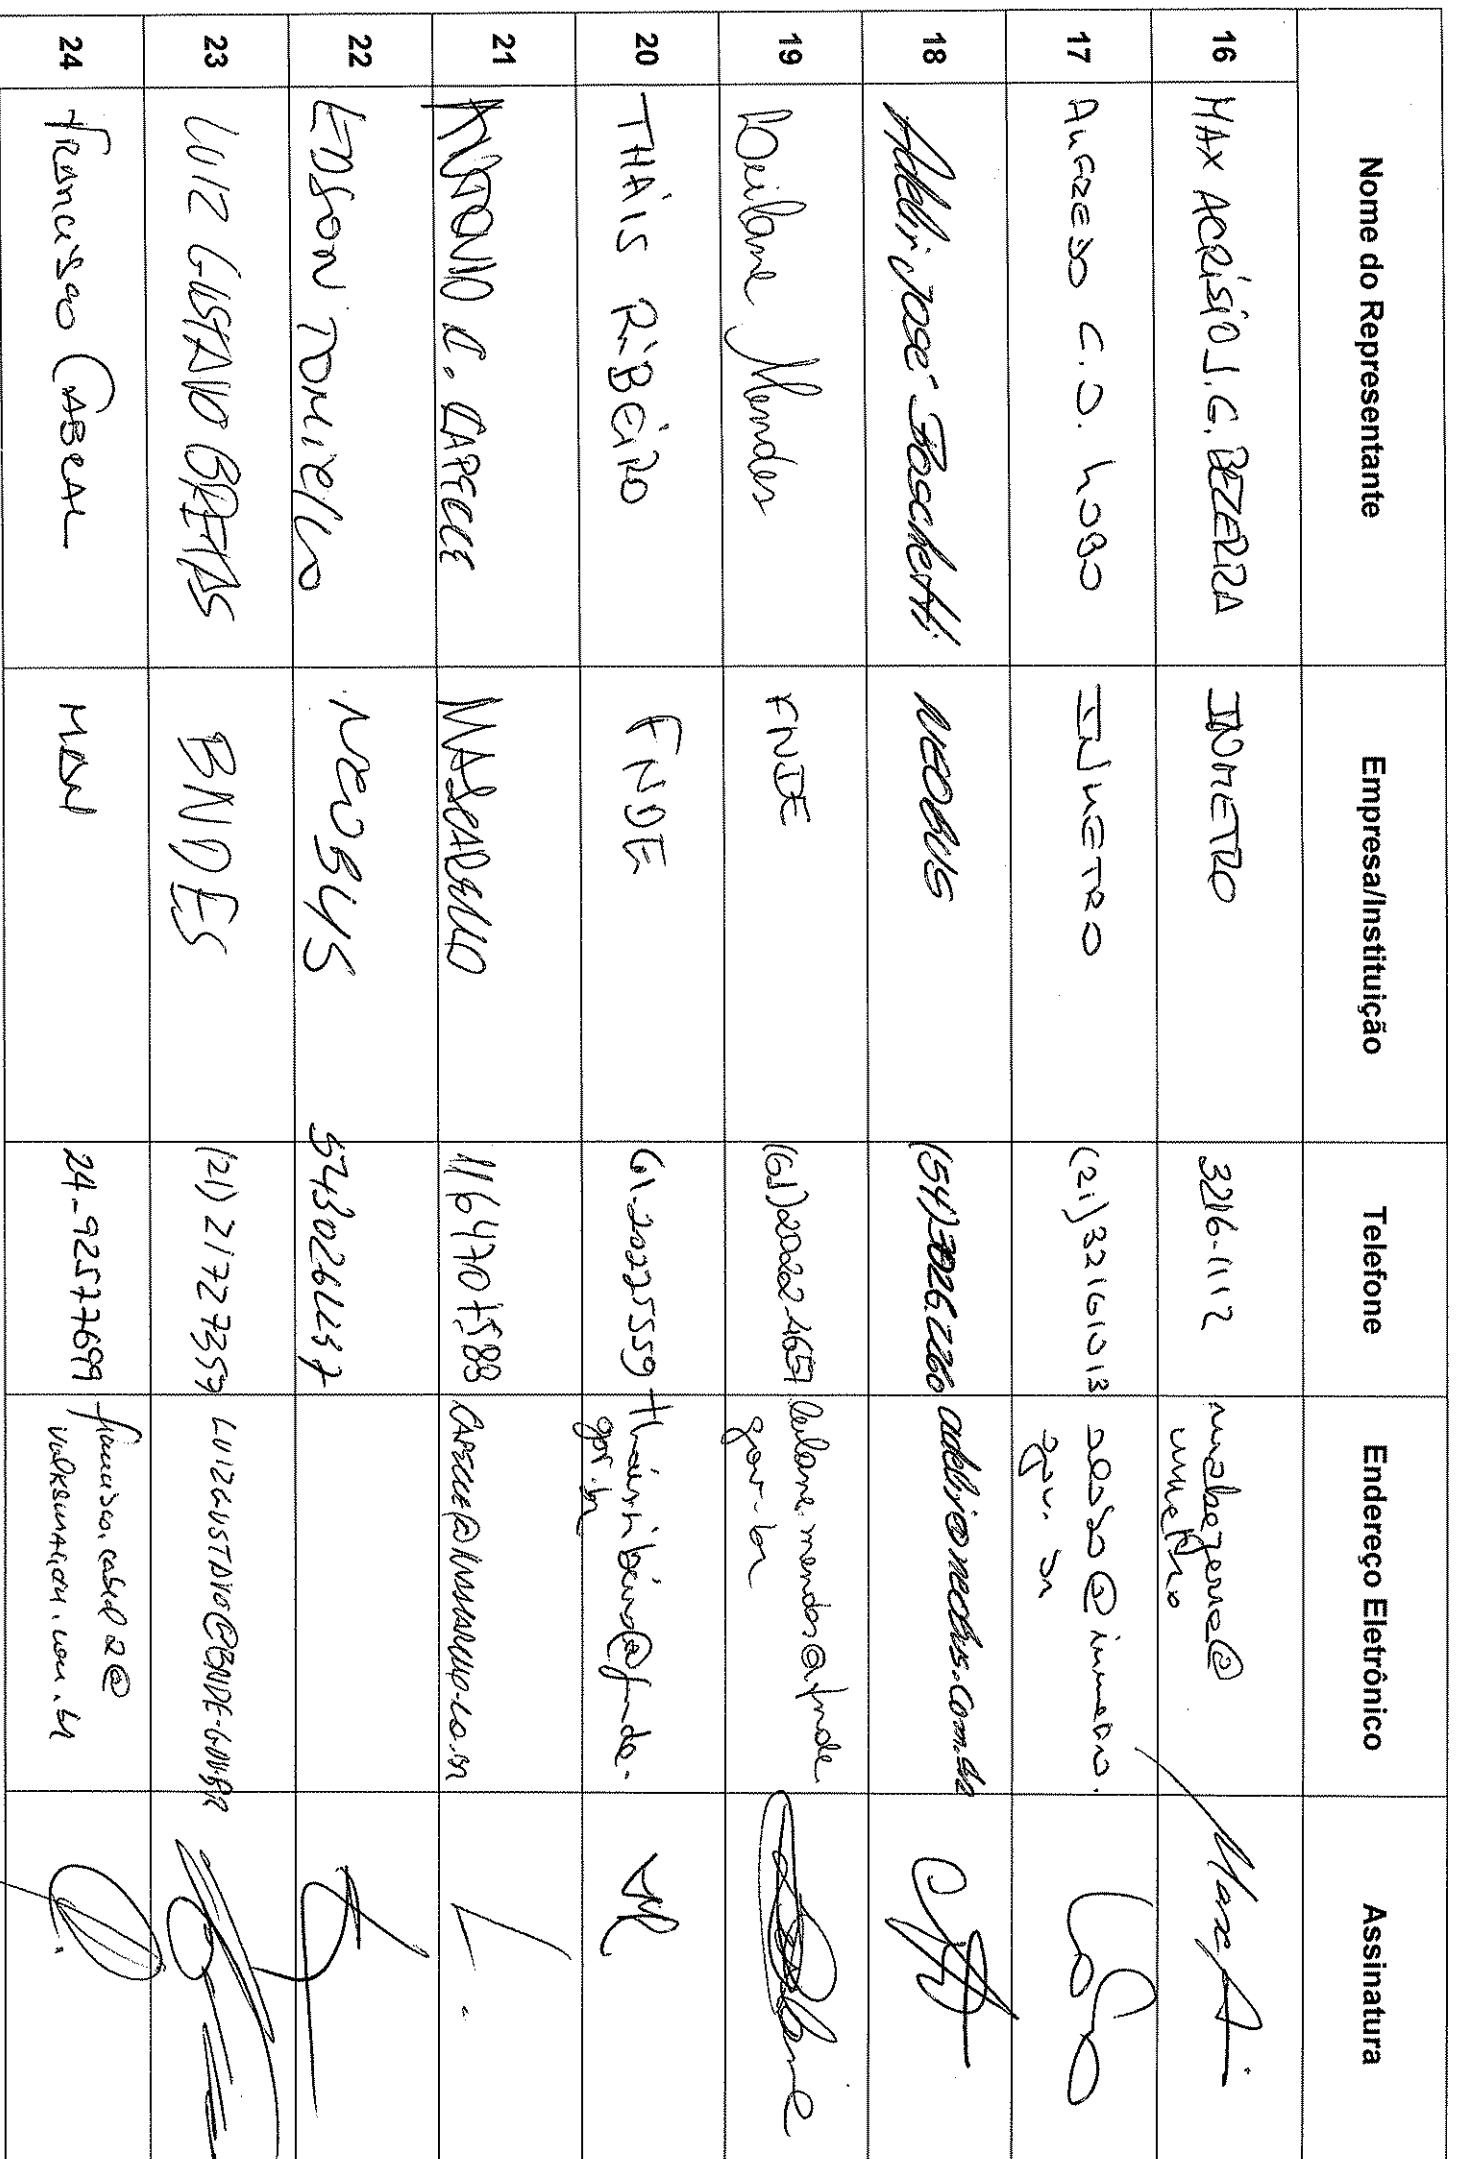 Nome do Representante Empresa/Instituição Telefone Endereço Eletrônico Assinatura
16 MAX ACRÍSIO J.G. BEZERRA INMETRO 3216-1112 @
17 C.O. LOBO INMETRO (21) 32161013 @inmetro.
gov. br
18 Adelir José Boschetti NEOBUS (54) 3026.2260 adelir@neobus.com.br
19 Leilane Mendes FNDE (61) leilane.mendes@fnde
gov.br
20 THAÍS RIBEIRO FNDE 61-20225559 thais.ribeiro@fnde.
gov.br
21 ANTONIO C. CAPECCE MASCARELLO
22 EDSON TOMIELLO NEOBUS
23 LUIZ GUSTAVO BRETAS BNDES (21) 21727359 LUIZGUSTAVO@BNDE-GOV.BR
24 Francisco CABRAL MAN 24-92577699 francisco.cabral2@
volkswagen.com.br